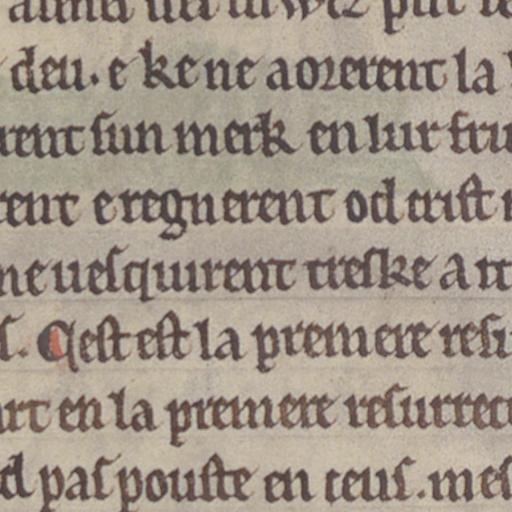 deu. e ke ne aorerent la
rent sun merk en lur fru
rent e regnerent od crist
ne uesquirent treske a
s. Cest est la premere resu
art en la premere resurrec
d pas pouste en ceus. mes